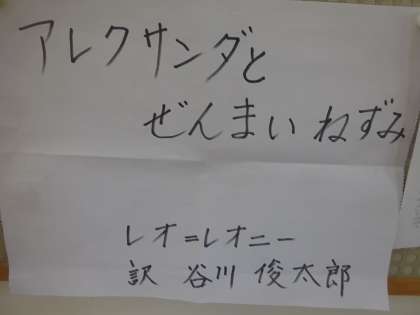 アレクサンダと
ぜんまいねずみ
レオ＝レオニー
訳 谷川 俊太郎